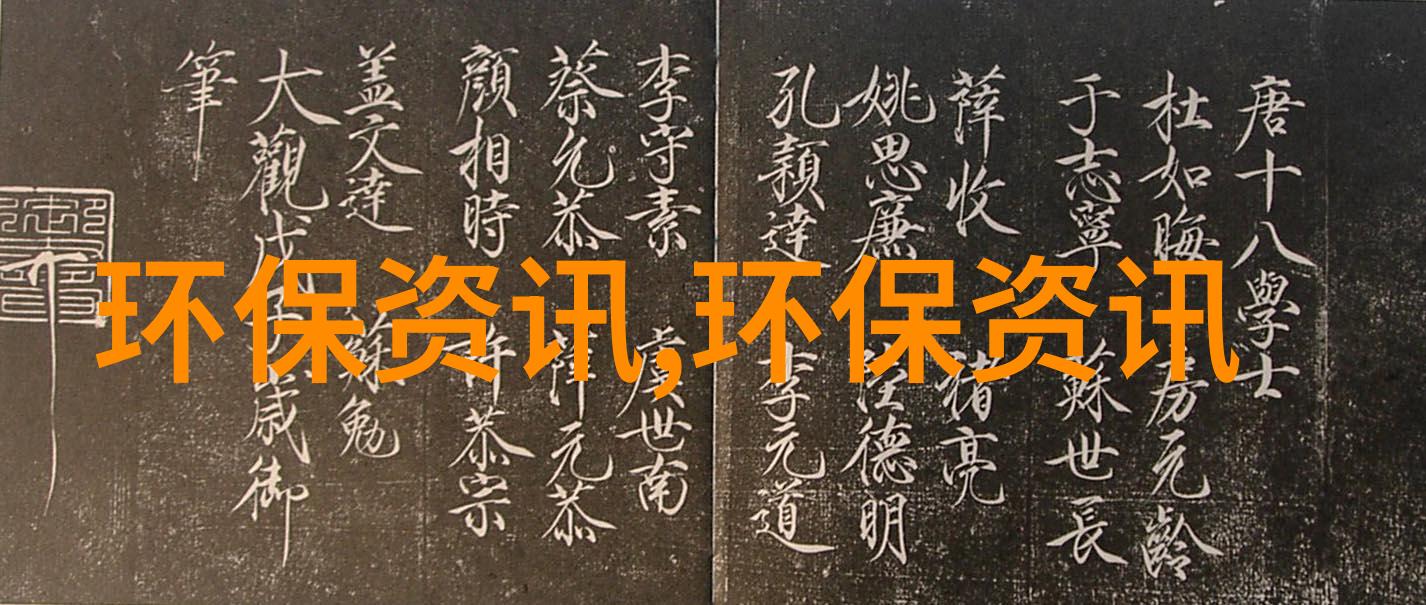 环保资讯,环保资讯
唐十八學士
杜如晦 房元齡
于志寧 蘇世長
薛收 褚亮
姚思廉 陸德明
孔穎達 李元道
李守素 虞世南
蔡允恭 薛元恭
顏相時 許恭宗
盖文達 蘇勉
大觀戊子歲御
筆